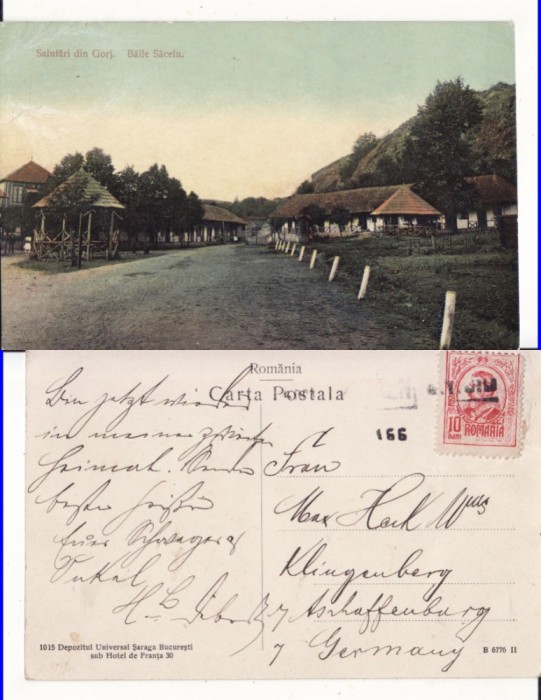 Salutări din Gorj. Băile Săcelu.
România
Carta Poștala
166
10
BANI
ROMANIA
Bin jetzt wieder
in meiner zweiten
Heimat.
besten Grüße
Euer Schwager &
Onkel
Frau
Max Heck Wwe
Klingenberg
Aschaffenburg
Germany
1015 Depozitul Universal Șaraga București
sub Hotel de Franța 30
B 6776 II